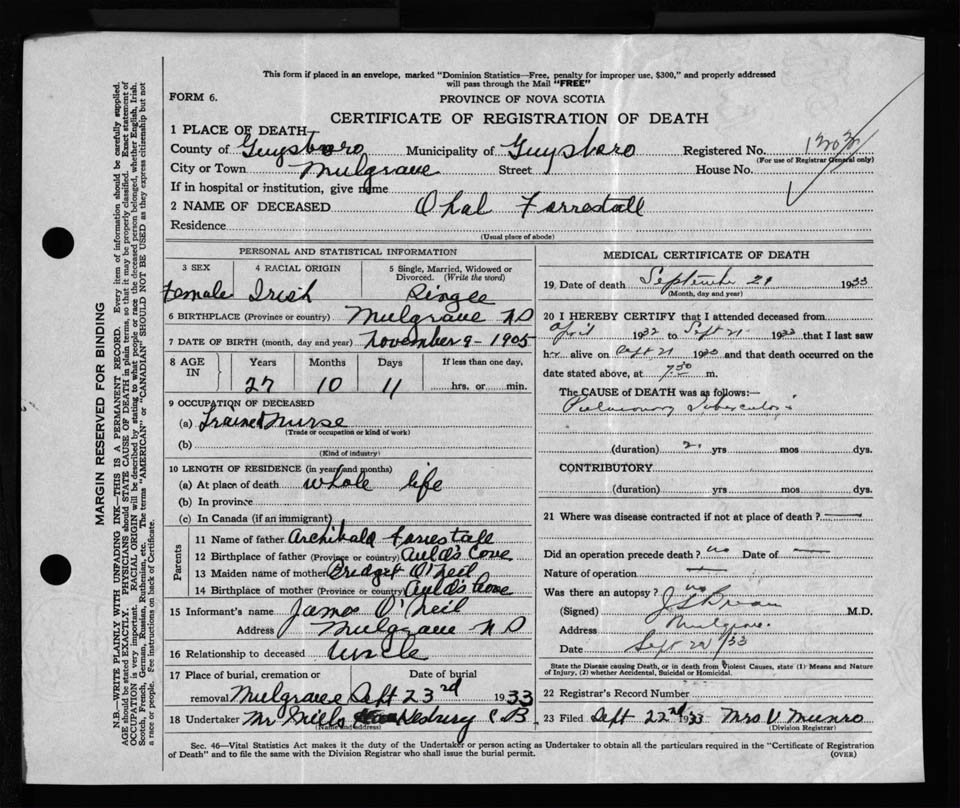 This form if placed in an envelope, marked "Dominion Statistics—Free, penalty for improper use, $300," and properly addressed
will pass through the Mail "FREE"
FORM 6.
PROVINCE OF NOVA SCOTIA
CERTIFICATE OF REGISTRATION OF DEATH
1 PLACE OF DEATH
County of Guysboro Municipality of Guysboro Registered No.
(For use of Registrar General only)
City or Town Mulgrave Street House No.
If in hospital or institution, give name
2 NAME OF DECEASED Ohal Forrestall
Residence
(Usual place of abode)
PERSONAL AND STATISTICAL INFORMATION
3 SEX 4 RACIAL ORIGIN 5 Single, Married, Widowed or Divorced. (Write the word)
Female Irish Single
6 BIRTHPLACE (Province or country) Mulgrave N S
7 DATE OF BIRTH (month, day and year) November 9 - 1905
8 AGE IN Years Months Days If less than one day,
27 10 11 hrs. or min.
9 OCCUPATION OF DECEASED
(a) Trained Nurse
(Trade or occupation or kind of work)
(b)
(Kind of industry)
10 LENGTH OF RESIDENCE (in years and months)
(a) At place of death whole life
(b) In province
(c) In Canada (if an immigrant)
Parents
11 Name of father Archibald Forrestall
12 Birthplace of father (Province or country) Auld's Cove
13 Maiden name of mother Bridget O'Neil
14 Birthplace of mother (Province or country) Auld's Cove
15 Informant's name James O'Neil
Address Mulgrave N S
16 Relationship to deceased Uncle
17 Place of burial, cremation or removal Date of burial
Mulgrave Sept 23rd 1933
18 Undertaker Mr Niels Hesbury C B.
(Name and address)
MEDICAL CERTIFICATE OF DEATH
19 Date of death September 21 1933
(Month, day and year)
20 I HEREBY CERTIFY that I attended deceased from
April 1932 to Sept 21 1933 that I last saw
her alive on Sept 21 1933 and that death occurred on the
date stated above, at 7.30 m.
The CAUSE of DEATH was as follows:
Pulmonary Tuberculosis
(duration) 2 yrs mos dys.
CONTRIBUTORY
(duration) yrs mos dys.
21 Where was disease contracted if not at place of death? —
Did an operation precede death? no Date of —
Nature of operation —
Was there an autopsy? no
(Signed) M.D.
Address Mulgrave.
Date Sept 22/33
State the Disease causing Death, or in death from Violent Causes, state (1) Means and Nature
of Injury, (2) whether Accidental, Suicidal or Homicidal.
22 Registrar's Record Number
23 Filed Sept 22nd 1933 Mrs V Munro
(Division Registrar)
Sec. 46—Vital Statistics Act makes it the duty of the Undertaker or person acting as Undertaker to obtain all the particulars required in the "Certificate of Registration
of Death" and to file the same with the Division Registrar who shall issue the burial permit. (OVER)
MARGIN RESERVED FOR BINDING
N.B.—WRITE PLAINLY WITH UNFADING INK—THIS IS A PERMANENT RECORD. Every item of information should be carefully supplied.
AGE should be stated EXACTLY. PHYSICIANS should STATE CAUSE OF DEATH in plain terms, so that it may be properly classified. Exact statement of
OCCUPATION is very important. RACIAL ORIGIN will be described by stating to what people or race the deceased person belonged, whether English, Irish,
Scotch, French, German, Russian, Ruthenian, etc. The terms "AMERICAN" or "CANADIAN" SHOULD NOT BE USED as they express citizenship but not
a race or people. See instructions on back of Certificate.